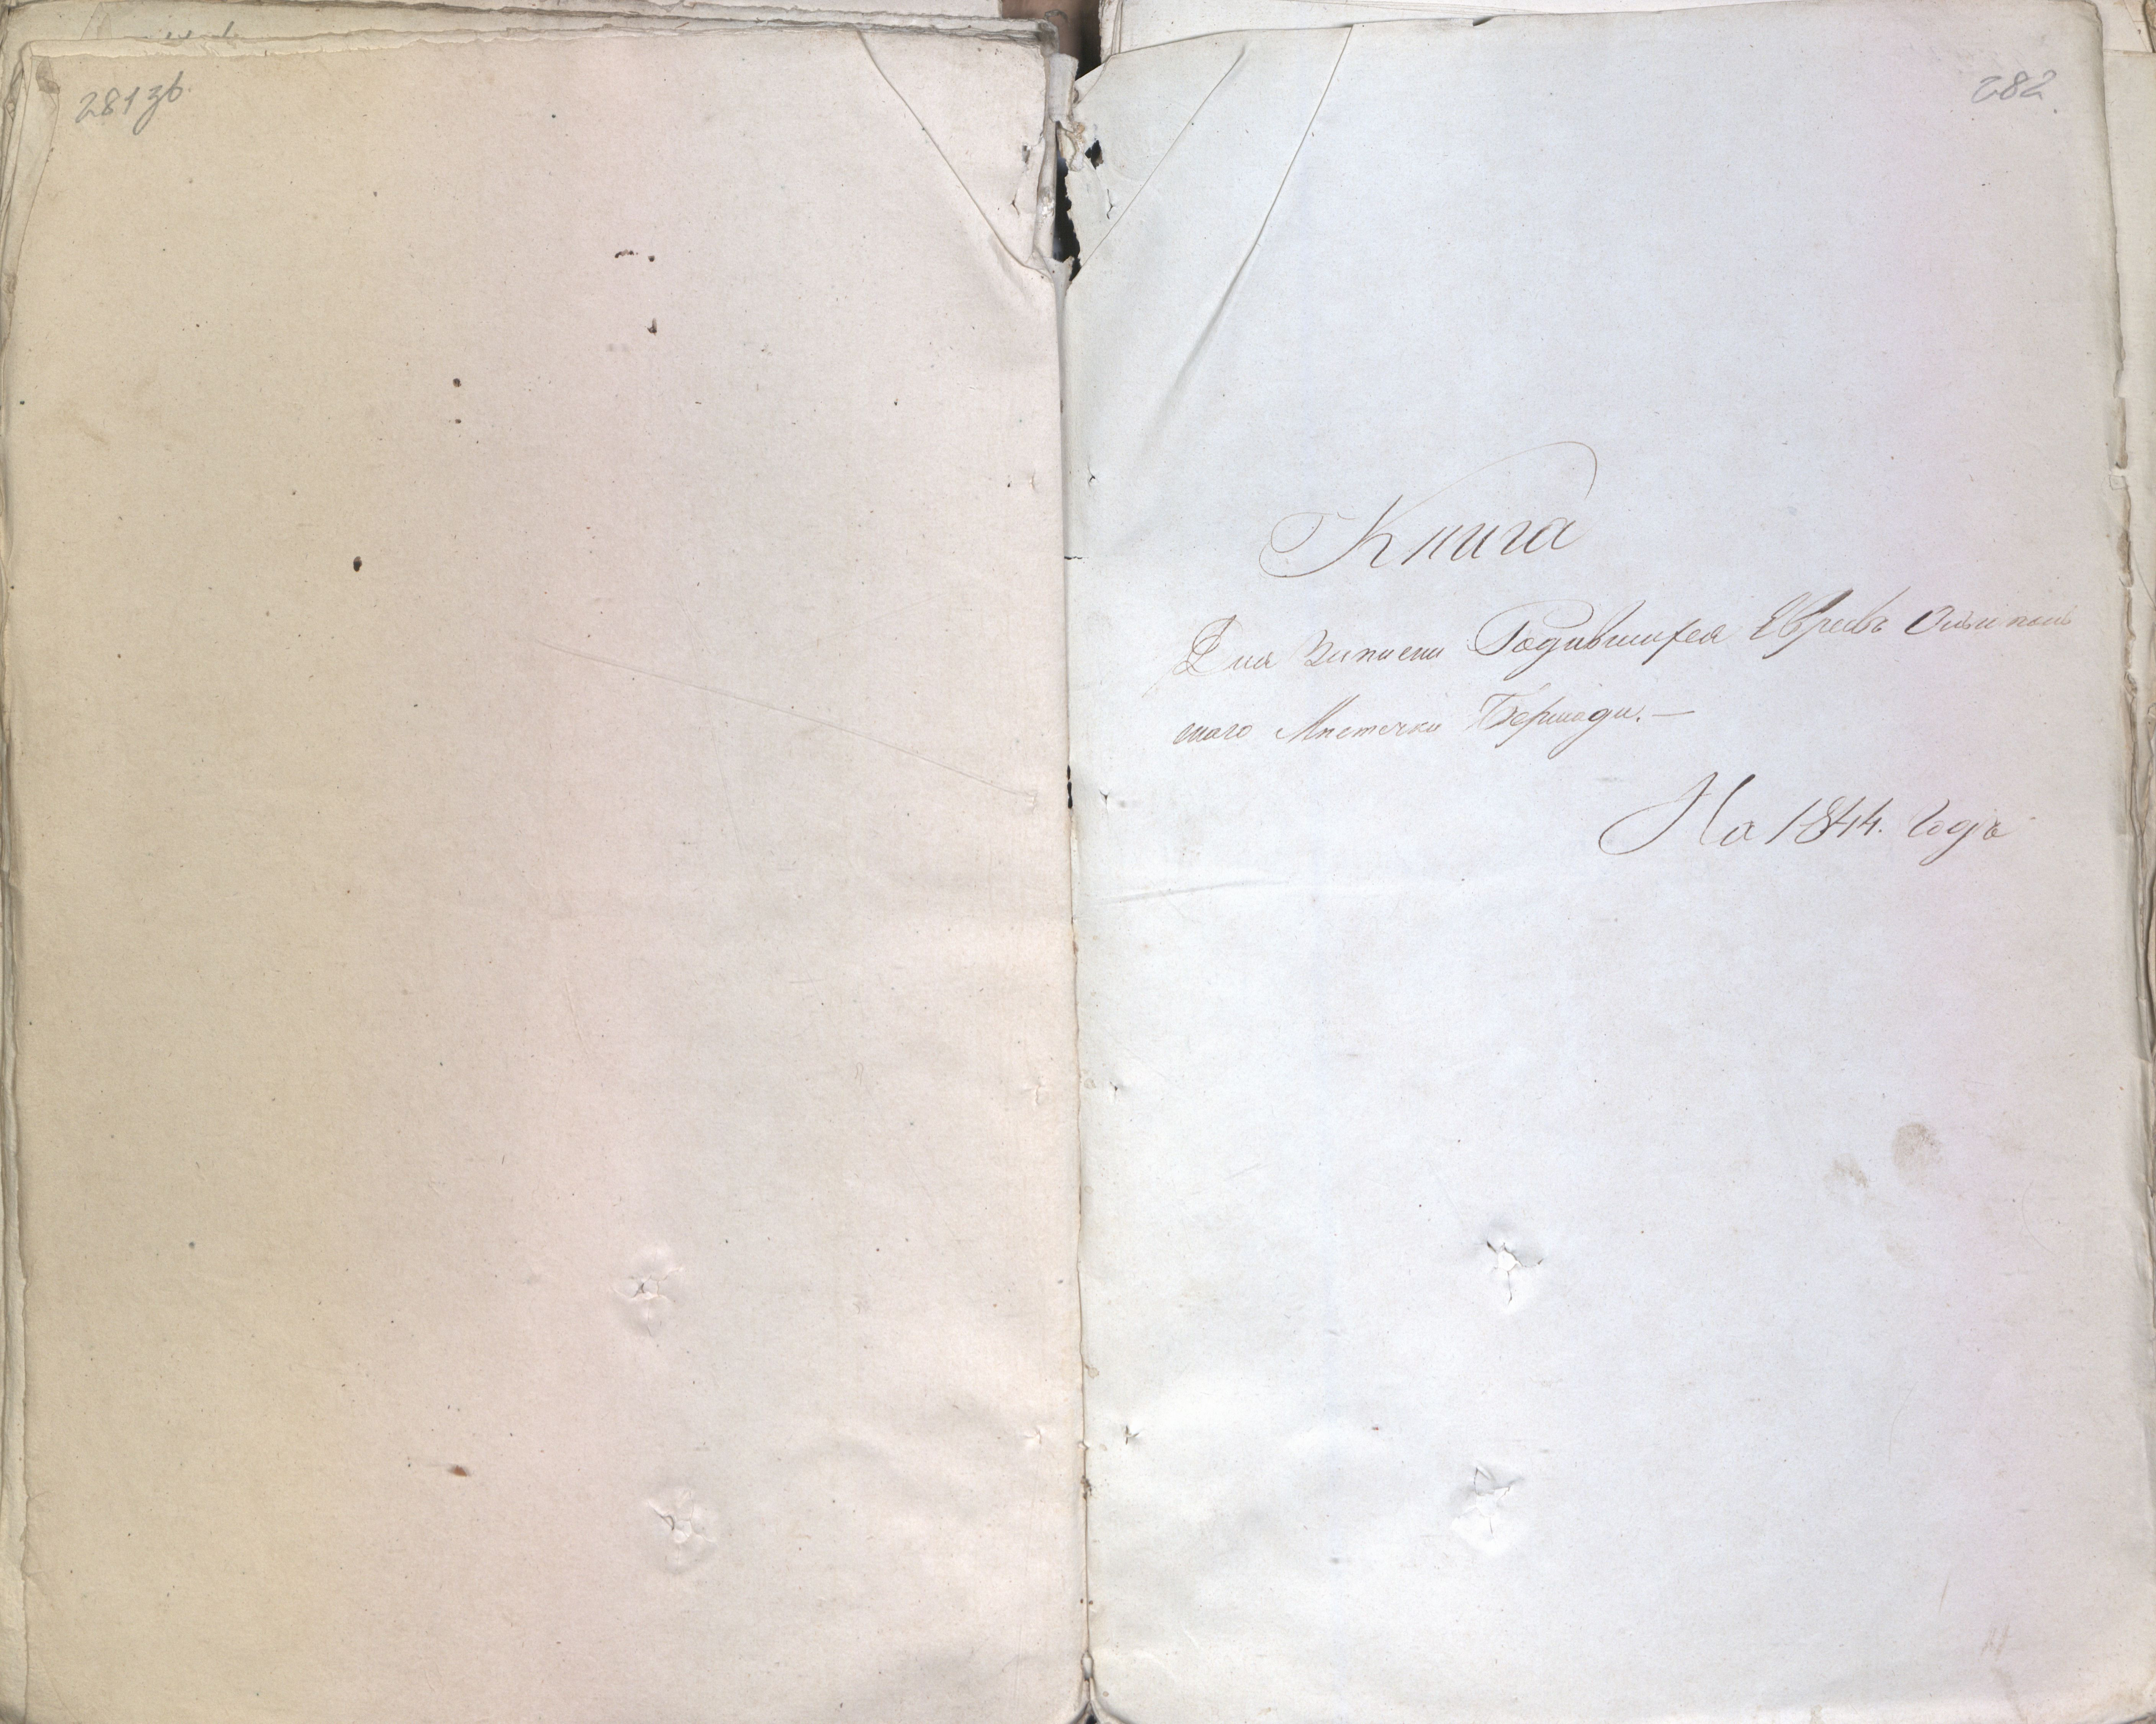 281 зв.
282
Книга
Для Записки Родившихся Евреевъ Ольгополь
скаго Мистечка Бершади. —
На 1844. Годъ